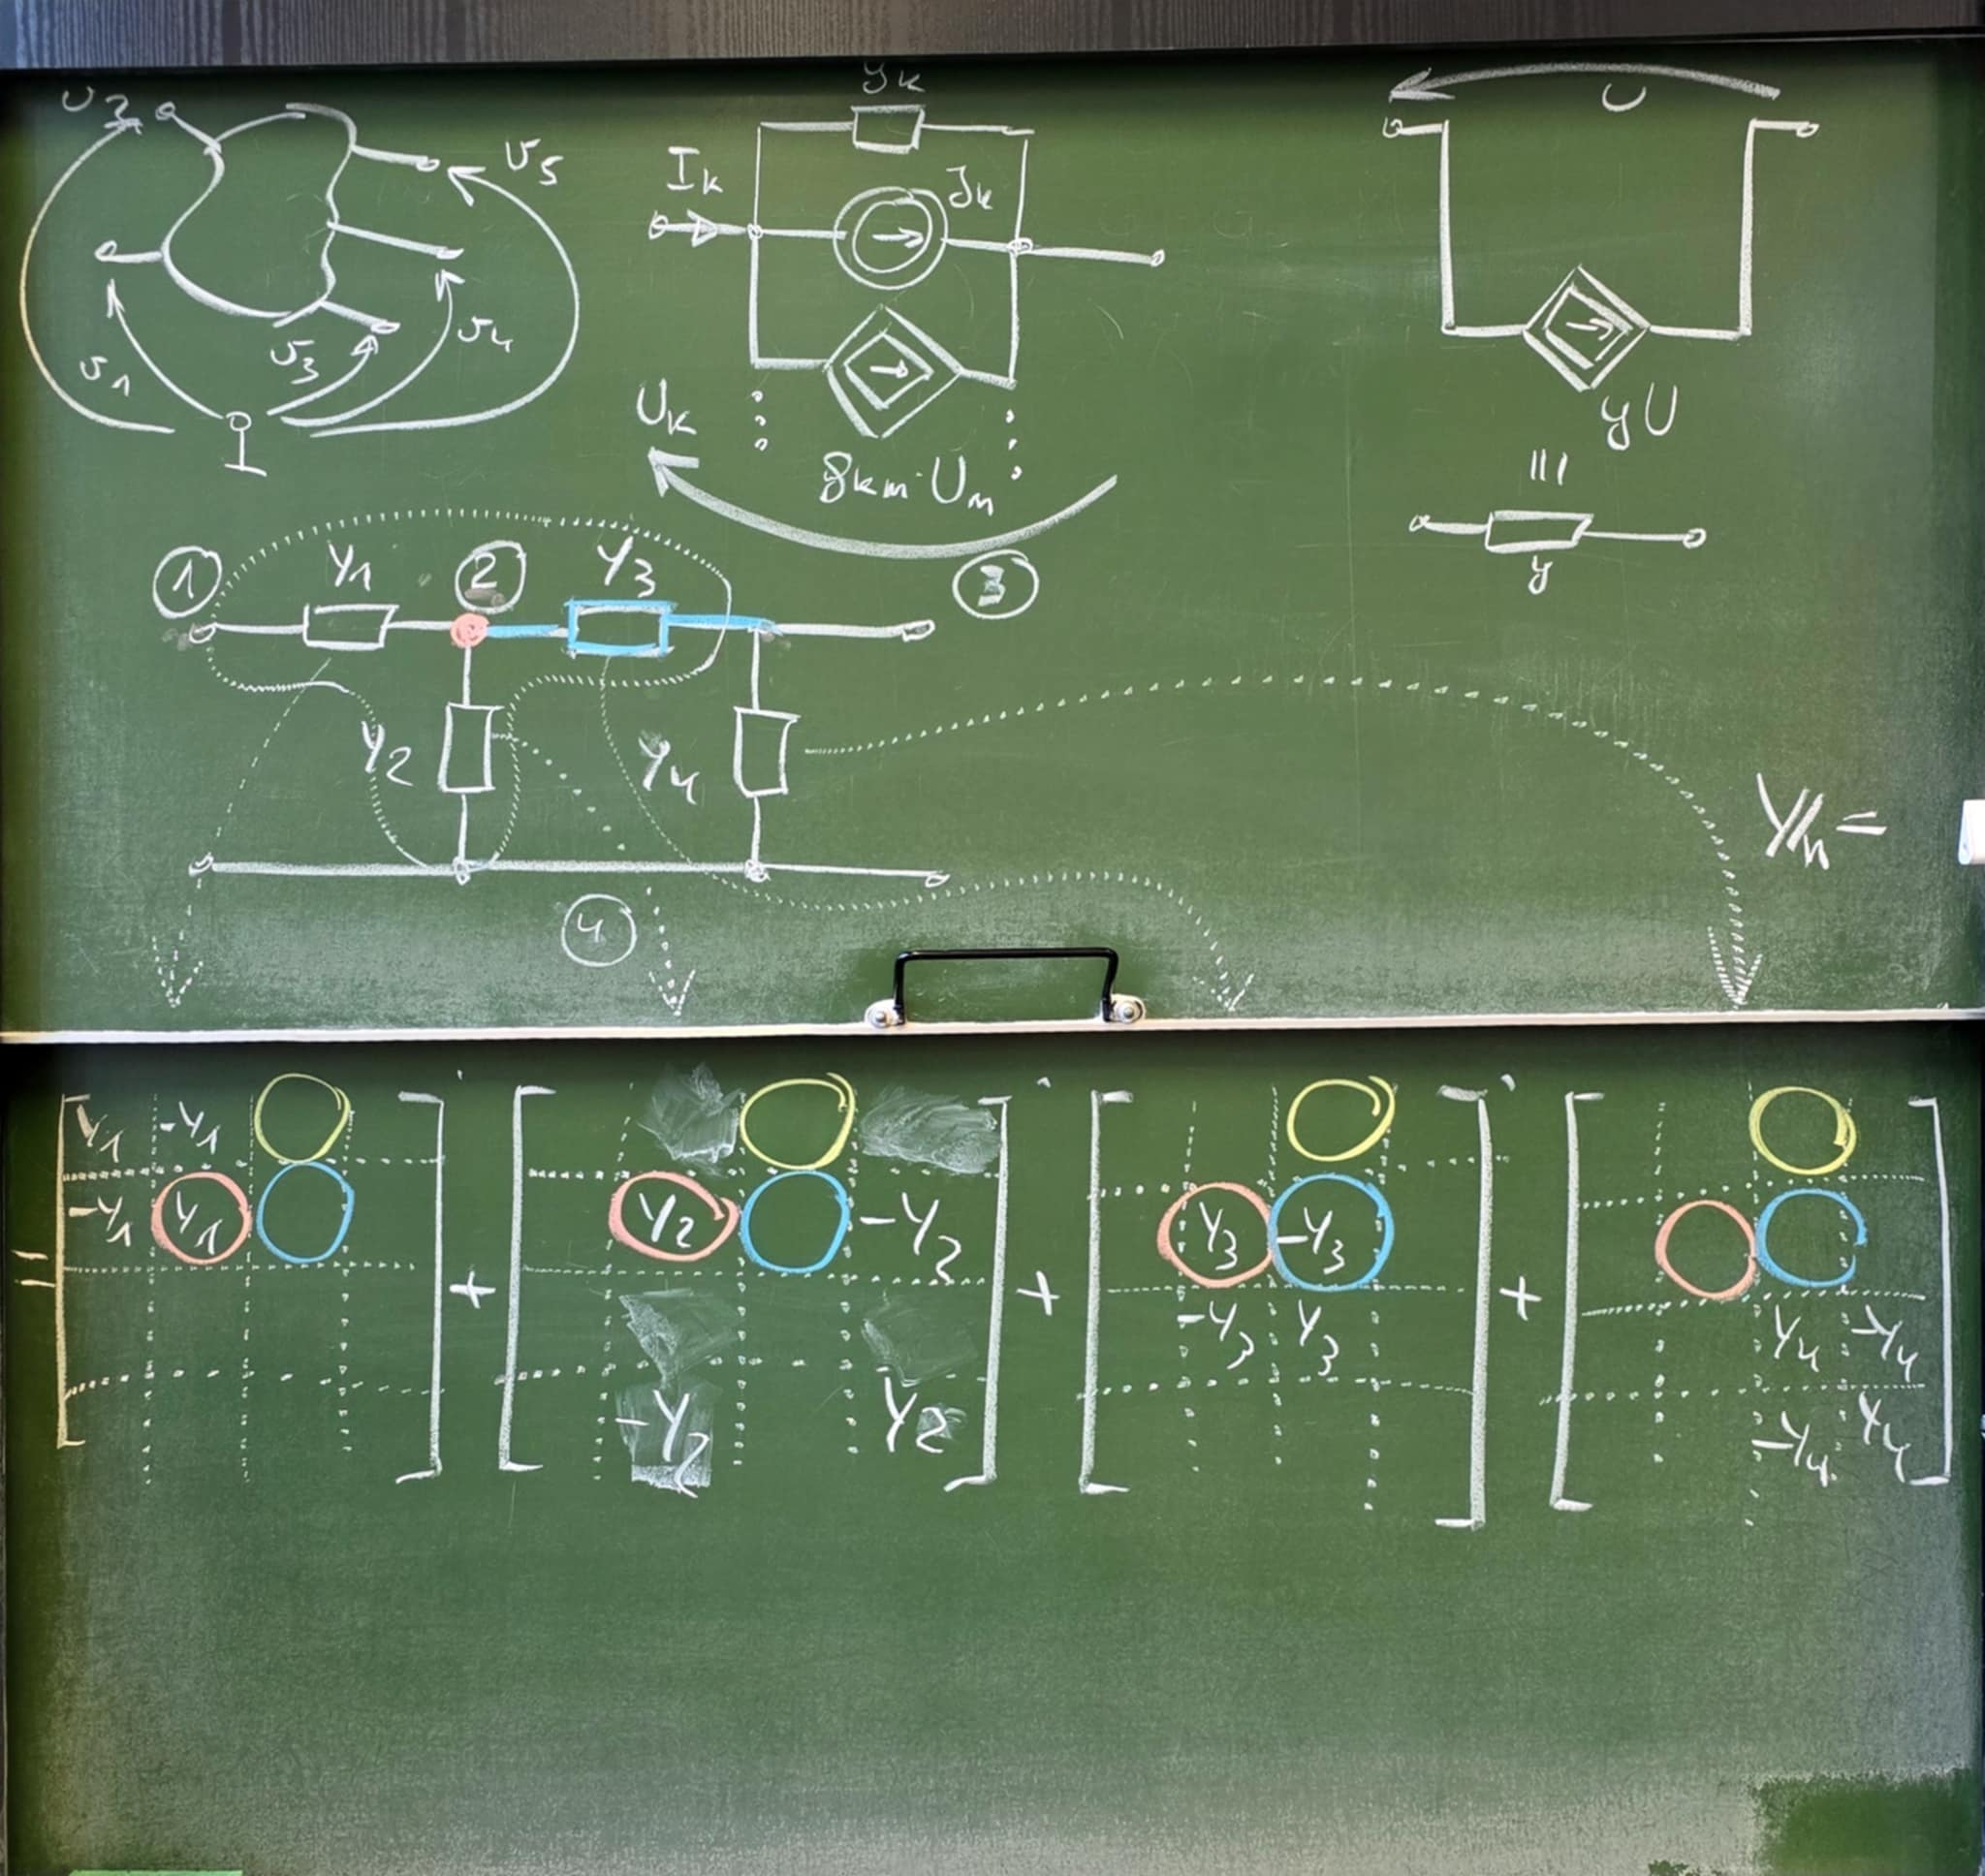 U2
U5
U1
U3
U4
yk
Ik
Jk
Uk
gkm·Um
U
yU
≡
y
1
Y1
2
Y3
3
Y2
Y4
4
Yn =
= [ Y1 -Y1 ] + [ ] + [ ] + [ ]
-Y1 Y1 Y2 -Y2 Y3 -Y3
-Y3 Y3 Y4 -Y4
-Y2 Y2 -Y4 Y4